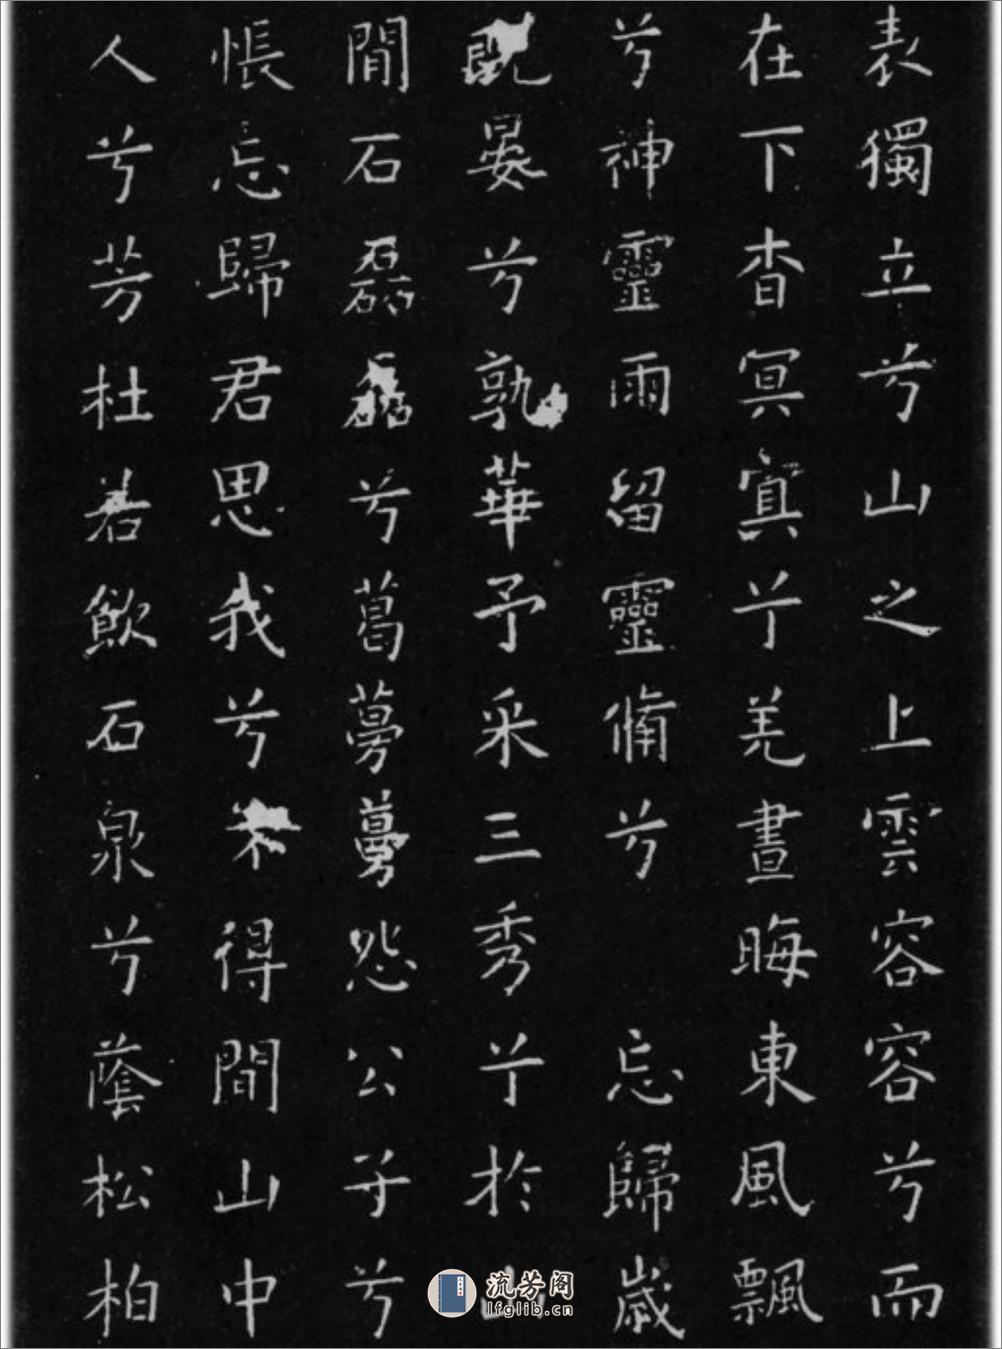 表獨立兮山之上雲容容兮而
在下杳冥冥兮羌晝晦東風飄
兮神靈雨留靈脩兮忘歸歲
既晏兮孰華予采三秀兮於山
間石磊磊兮葛蔓蔓怨公子兮
悵忘歸君思我兮不得間山中
人兮芳杜若飲石泉兮蔭松柏
流芳阁
lfglib.cn